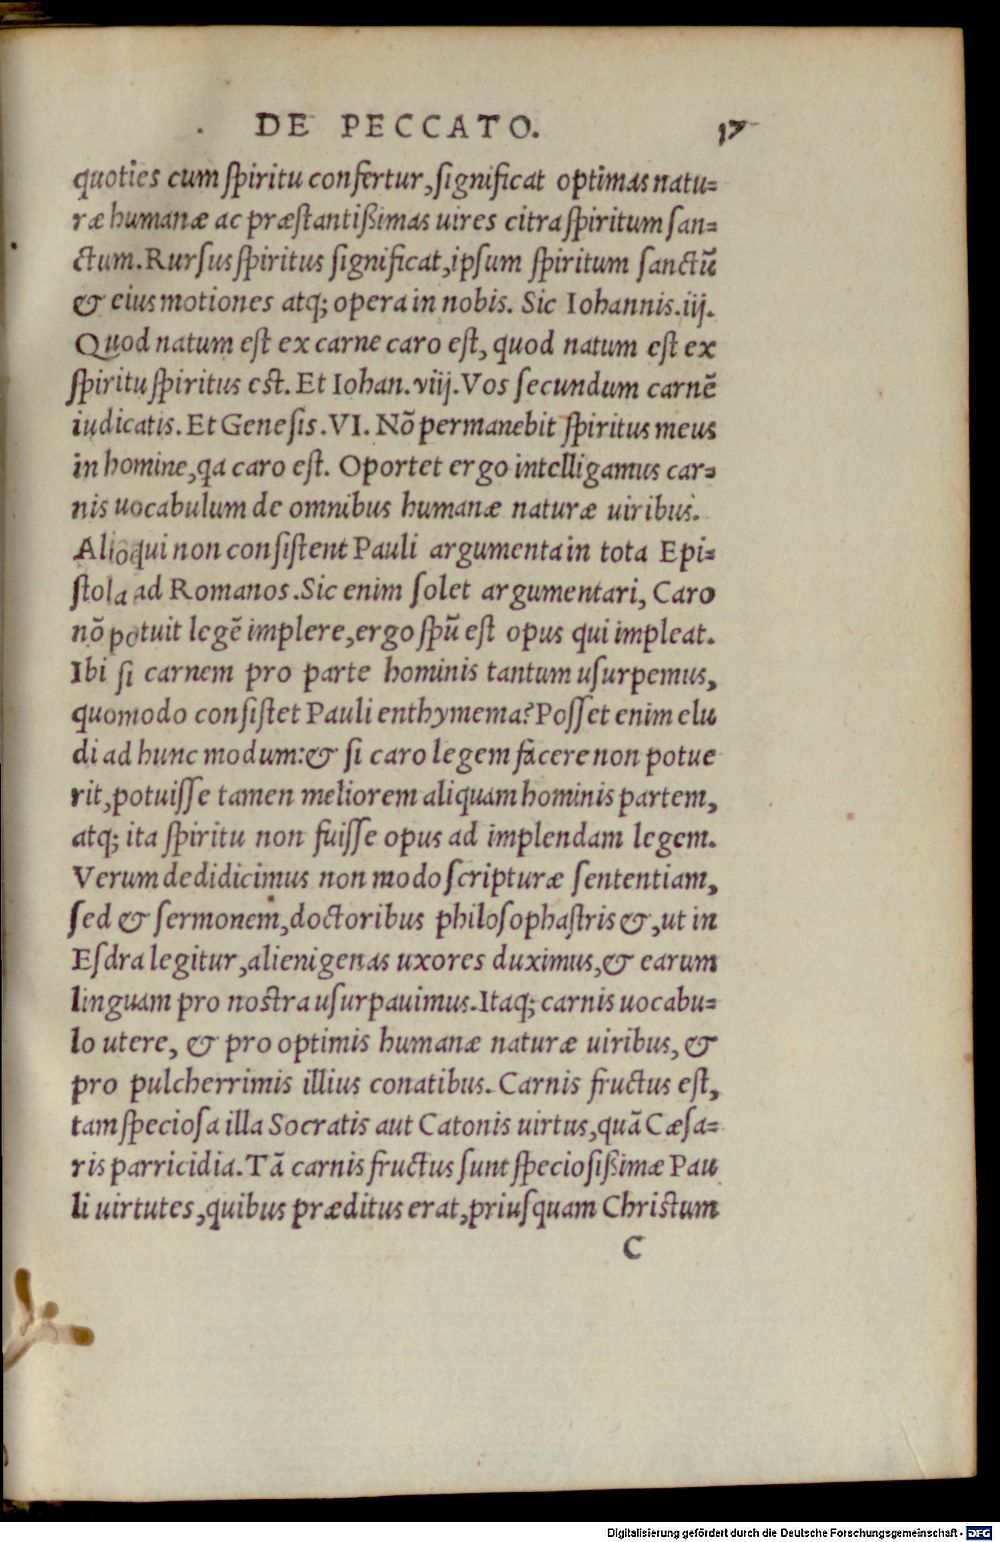 DE PECCATO. 17
quoties cum ſpiritu confertur, ſignificat optimas natu=
ræ humanæ ac præſtantißimas uires citra ſpiritum ſan=
ctum. Rurſus ſpiritus ſignificat, ipſum ſpiritum ſanctũ
& eius motiones atq; opera in nobis. Sic Iohannis. iij.
Quod natum eſt ex carne caro eſt, quod natum eſt ex
ſpiritu ſpiritus eſt. Et Iohan. viij. Vos ſecundum carnẽ
iudicatis. Et Geneſis. VI. Nõ permanebit ſpiritus meus
in homine, qa caro eſt. Oportet ergo intelligamus car=
nis uocabulum de omnibus humanæ naturæ uiribus.
Alioqui non conſiſtent Pauli argumenta in tota Epi=
ſtola ad Romanos. Sic enim ſolet argumentari, Caro
nõ potuit legẽ implere, ergo ſpũ eſt opus qui impleat.
Ibi ſi carnem pro parte hominis tantum uſurpemus,
quomodo conſiſtet Pauli enthymema? Poſſet enim elu
di ad hunc modum: & ſi caro legem facere non potue
rit, potuiſſe tamen meliorem aliquam hominis partem,
atq; ita ſpiritu non fuiſſe opus ad implendam legem.
Verum dedidicimus non modo ſcripturæ ſententiam,
ſed & ſermonem, doctoribus philoſophaſtris &, ut in
Eſdra legitur, alienigenas uxores duximus, & earum
linguam pro noſtra uſurpauimus. Itaq; carnis uocabu=
lo utere, & pro optimis humanæ naturæ uiribus, &
pro pulcherrimis illius conatibus. Carnis fructus eſt,
tam ſpecioſa illa Socratis aut Catonis uirtus, quã Cæſa=
ris parricidia. Tã carnis fructus ſunt ſpecioſißimæ Pau
li uirtutes, quibus præditus erat, priuſquam Chriſtum
C
Digitalisierung gefördert durch die Deutsche Forschungsgemeinschaft - DFG